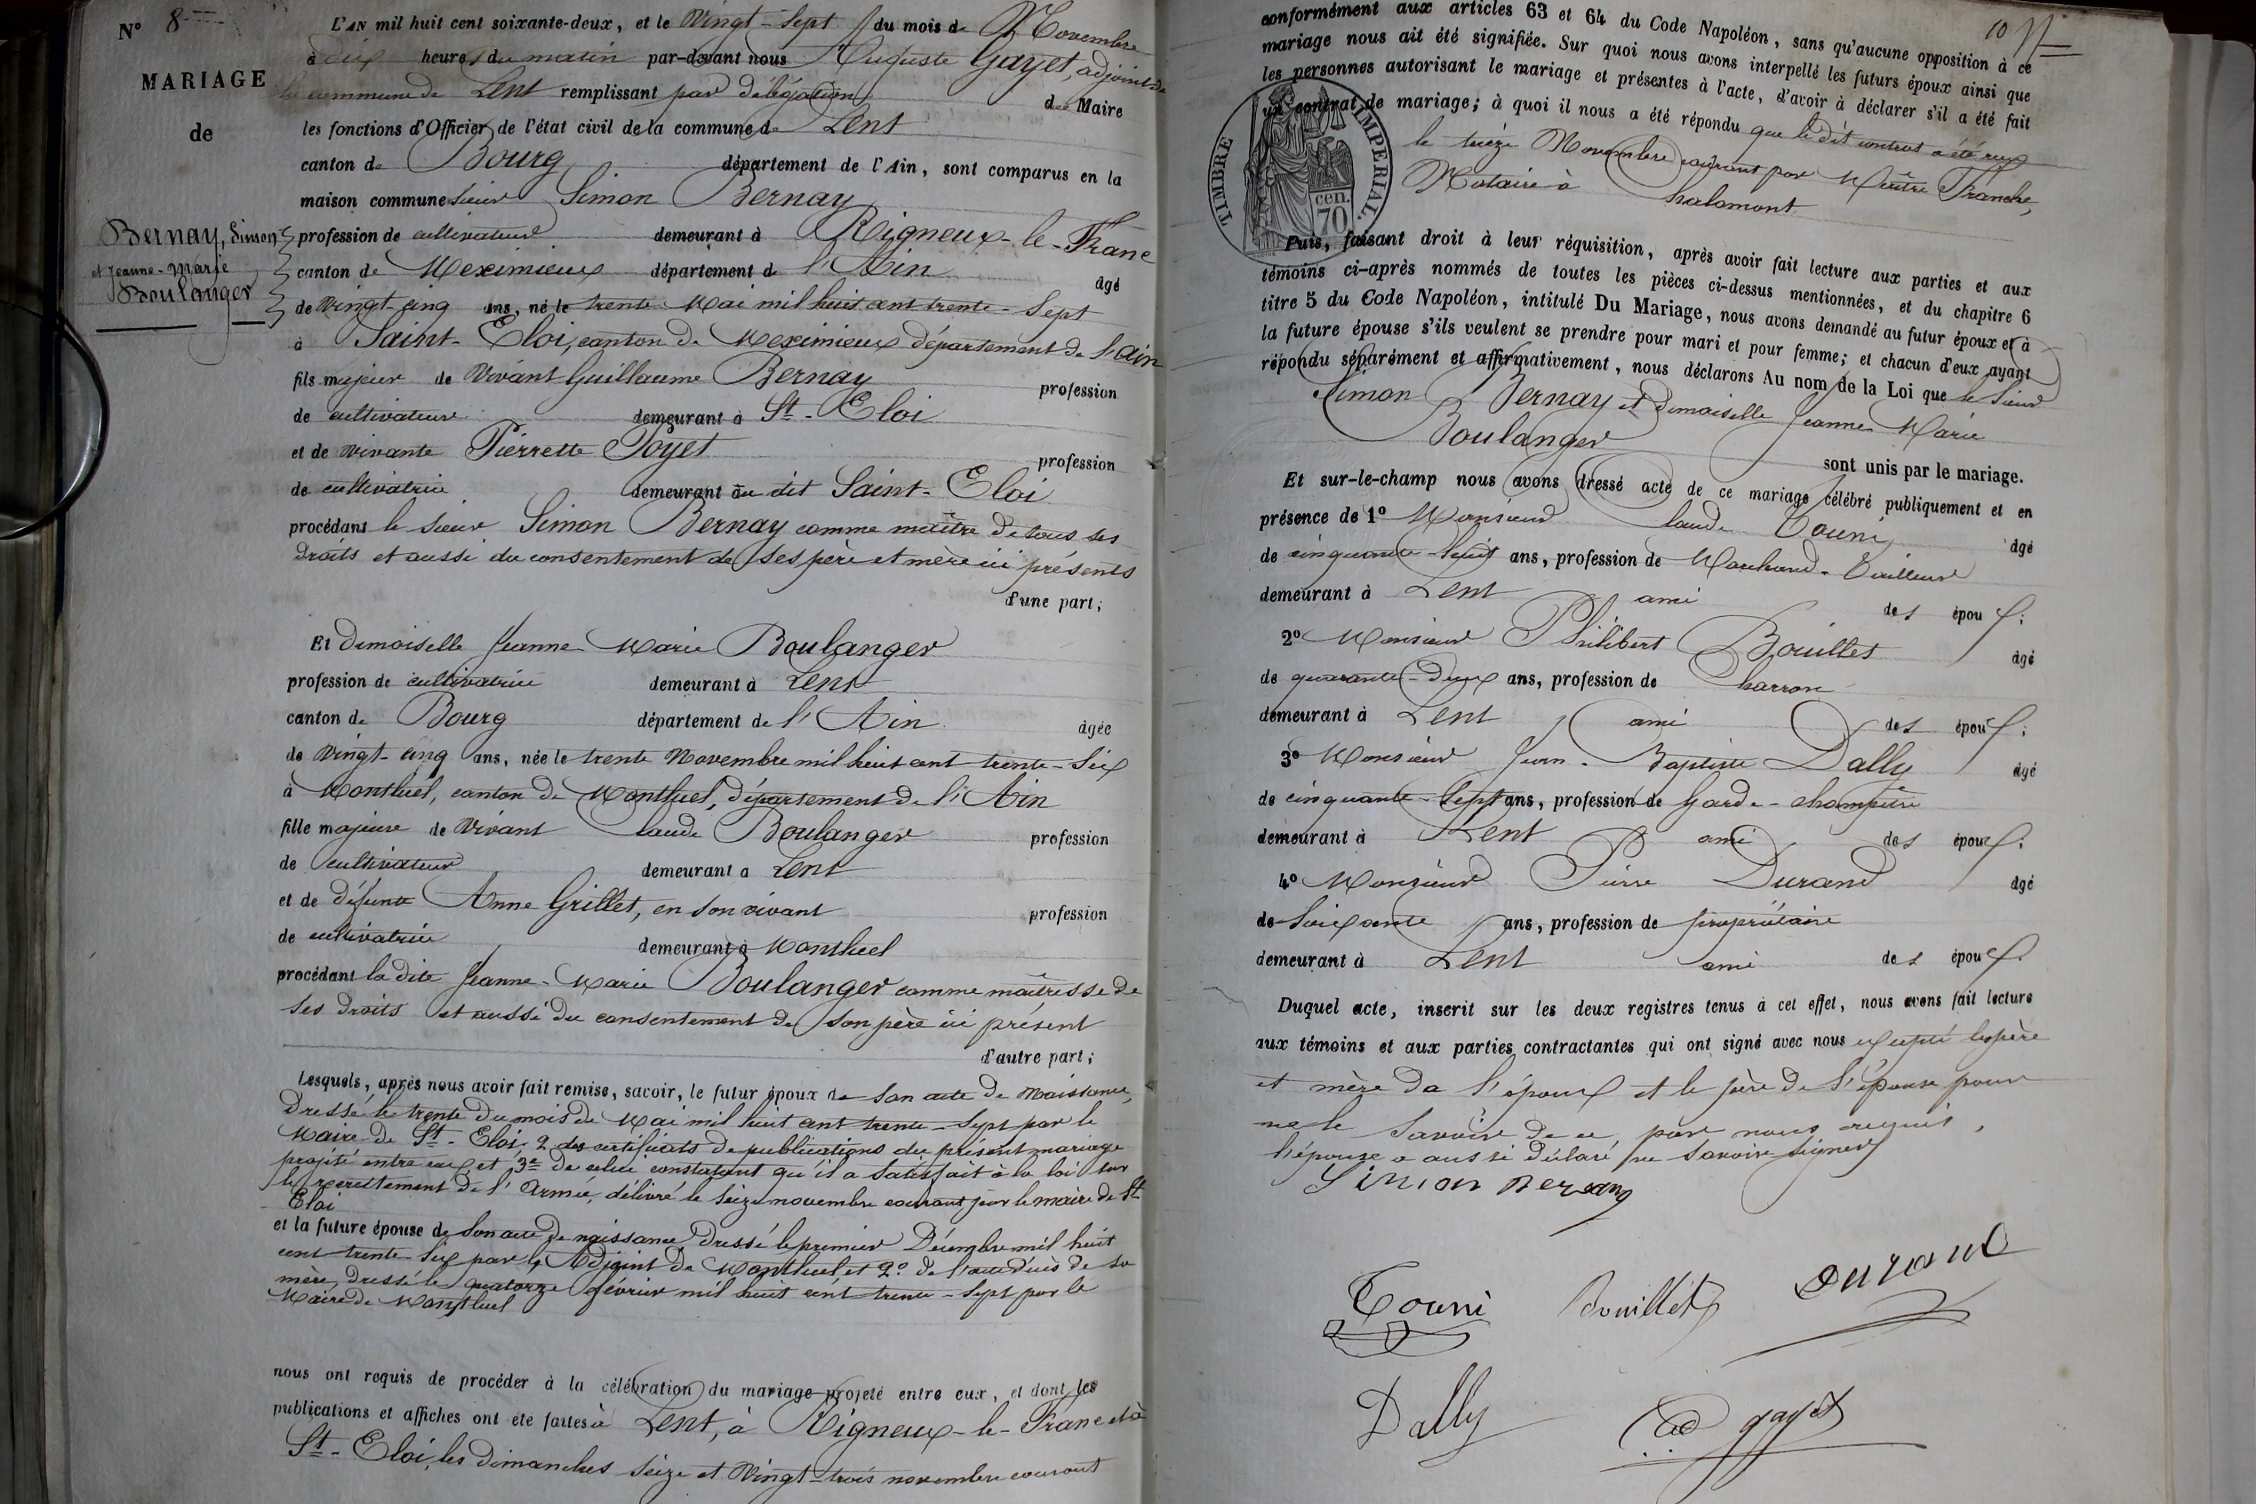 N° 8
MARIAGE
de
Bernay, Simon
et Jeanne-Marie
Boulanger
L'AN mil huit cent soixante-deux, et le Vingt-Sept du mois de Novembre
à dix heures du matin par-devant nous Auguste Gayet, adjoint de
la commune de Lent remplissant par délégation du Maire
les fonctions d'Officier de l'état civil de la commune de Lent
canton de Bourg département de l'Ain, sont comparus en la
maison commune Sieur Simon Bernay
profession de cultivateur demeurant à Rigneux-le-Franc
canton de Meximieux département de l'Ain âgé
de Vingt-cinq ans, né le trente Mai mil huit cent trente-Sept
à Saint-Eloi, canton de Meximieux département de l'Ain
fils majeur de Vivant Guillaume Bernay profession
de cultivateur demeurant à St-Eloi
et de vivante Pierrette Poyet profession
de cultivatrice demeurant au dit Saint-Eloi
procédant le Sieur Simon Bernay comme maître de tous ses
droits et aussi du consentement de Ses père et mère ici présents
d'une part;
Et Demoiselle Jeanne Marie Boulanger
profession de cultivatrice demeurant à Lent
canton de Bourg département de l'Ain âgée
de Vingt-cinq ans, née le trente Novembre mil huit cent trente-Six
à Montluel, canton de Montluel, département de l'Ain
fille majeure de Vivant Claude Boulanger profession
de cultivateur demeurant à Lent
et de défunte Anne Grillet, en son vivant profession
de cultivatrice demeurant à Montluel
procédant la dite Jeanne-Marie Boulanger comme maîtresse de
Ses droits et aussi du consentement de Son père ici présent
d'autre part;
Lesquels, après nous avoir fait remise, savoir, le futur époux de Son acte de Naissance,
Dressé le trente du mois de Mai mil huit cent trente-Sept par le
Maire de St-Eloi, 2 des certificats de publications du présent mariage
projeté entre eux et 3e de celui constatant qu'il a Satisfait à la loi sur
le recrutement de l'Armée, délivré le Seize novembre courant par le maire de St
Eloi
et la future épouse de Son acte de naissance Dressé le premier Décembre mil huit
cent trente-Six par l'Adjoint de Montluel et 2° de l'acte décès de sa
mère, dressé le quatorze février mil huit cent trente-Sept par le
Maire de Montluel
nous ont requis de procéder à la célébration du mariage projeté entre eux, et dont les
publications et affiches ont été faites à Lent, à Rigneux-le-Franc et à
St-Eloi, les dimanches Seize et Vingt-trois novembre courant
10
conformément aux articles 63 et 64 du Code Napoléon, sans qu'aucune opposition à ce
mariage nous ait été signifiée. Sur quoi nous avons interpellé les futurs époux ainsi que
les personnes autorisant le mariage et présentes à l'acte, d'avoir à déclarer s'il a été fait
un contrat de mariage; à quoi il nous a été répondu que le dit contrat a été reçu
le treize Novembre courant par Maître Franche,
Notaire à Chalamont
TIMBRE IMPERIAL.
cen. 70
Puis, faisant droit à leur réquisition, après avoir fait lecture aux parties et aux
témoins ci-après nommés de toutes les pièces ci-dessus mentionnées, et du chapitre 6
titre 5 du Code Napoléon, intitulé Du Mariage, nous avons demandé au futur époux et à
la future épouse s'ils veulent se prendre pour mari et pour femme; et chacun d'eux ayant
répondu séparément et affirmativement, nous déclarons Au nom de la Loi que le Sieur
Simon Bernay et Demoiselle Jeanne Marie
Boulanger
sont unis par le mariage.
Et sur-le-champ nous avons dressé acte de ce mariage célébré publiquement et en
présence de 1° Monsieur Claude Touni âgé
de cinquante-huit ans, profession de Marchand-Tailleur
demeurant à Lent ami des époux;
2° Monsieur Philibert Bouillet âgé
de quarante-Deux ans, profession de Charron
demeurant à Lent ami des époux;
3° Monsieur Jean-Baptiste Dally âgé
de cinquante-Sept ans, profession de Garde-champêtre
demeurant à Lent ami des époux;
4° Monsieur Pierre Durand âgé
de Soixante ans, profession de propriétaire
demeurant à Lent ami des époux.
Duquel acte, inscrit sur les deux registres tenus à cet effet, nous avons fait lecture
aux témoins et aux parties contractantes qui ont signé avec nous excepté le père
et mère de l'époux et le père de l'épouse pour
ne le Savoir de ce par nous requis,
l'épouse a aussi déclaré ne Savoir Signer
Simon Bernay
Touni Bouillet Durand
Dally ad gayet